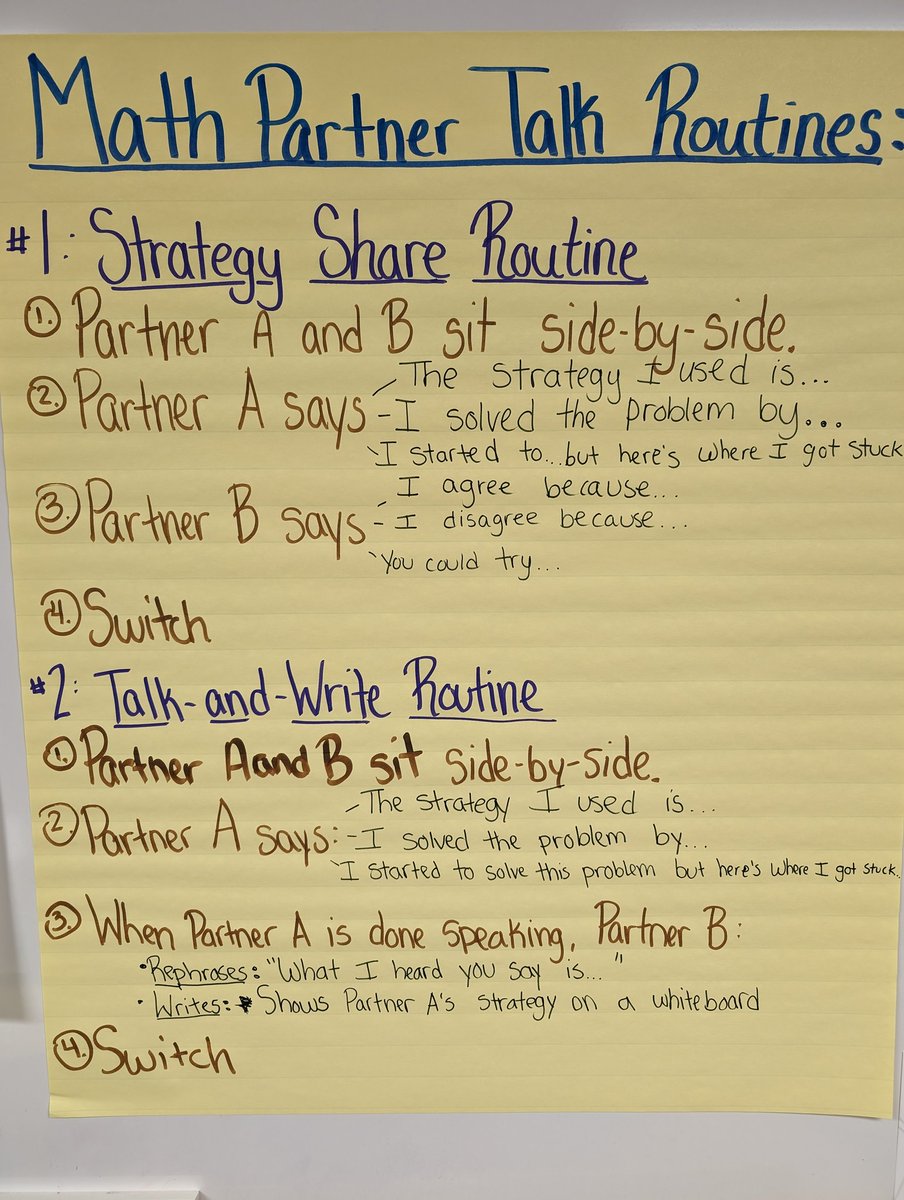 Math Partner Talk Routines:
#1: Strategy Share Routine
1. Partner A and B sit side-by-side.
2. Partner A says
- The strategy I used is...
- I solved the problem by...
- I started to...but here's where I got stuck
3. Partner B says
- I agree because...
- I disagree because...
- You could try...
4. Switch
#2: Talk-and-Write Routine
1. Partner A and B sit side-by-side.
2. Partner A says:
- The strategy I used is...
- I solved the problem by...
- I started to solve this problem but here's where I got stuck..
3. When Partner A is done speaking, Partner B:
• Rephrases: "What I heard you say is..."
• Writes: Shows Partner A's strategy on a whiteboard
4. Switch